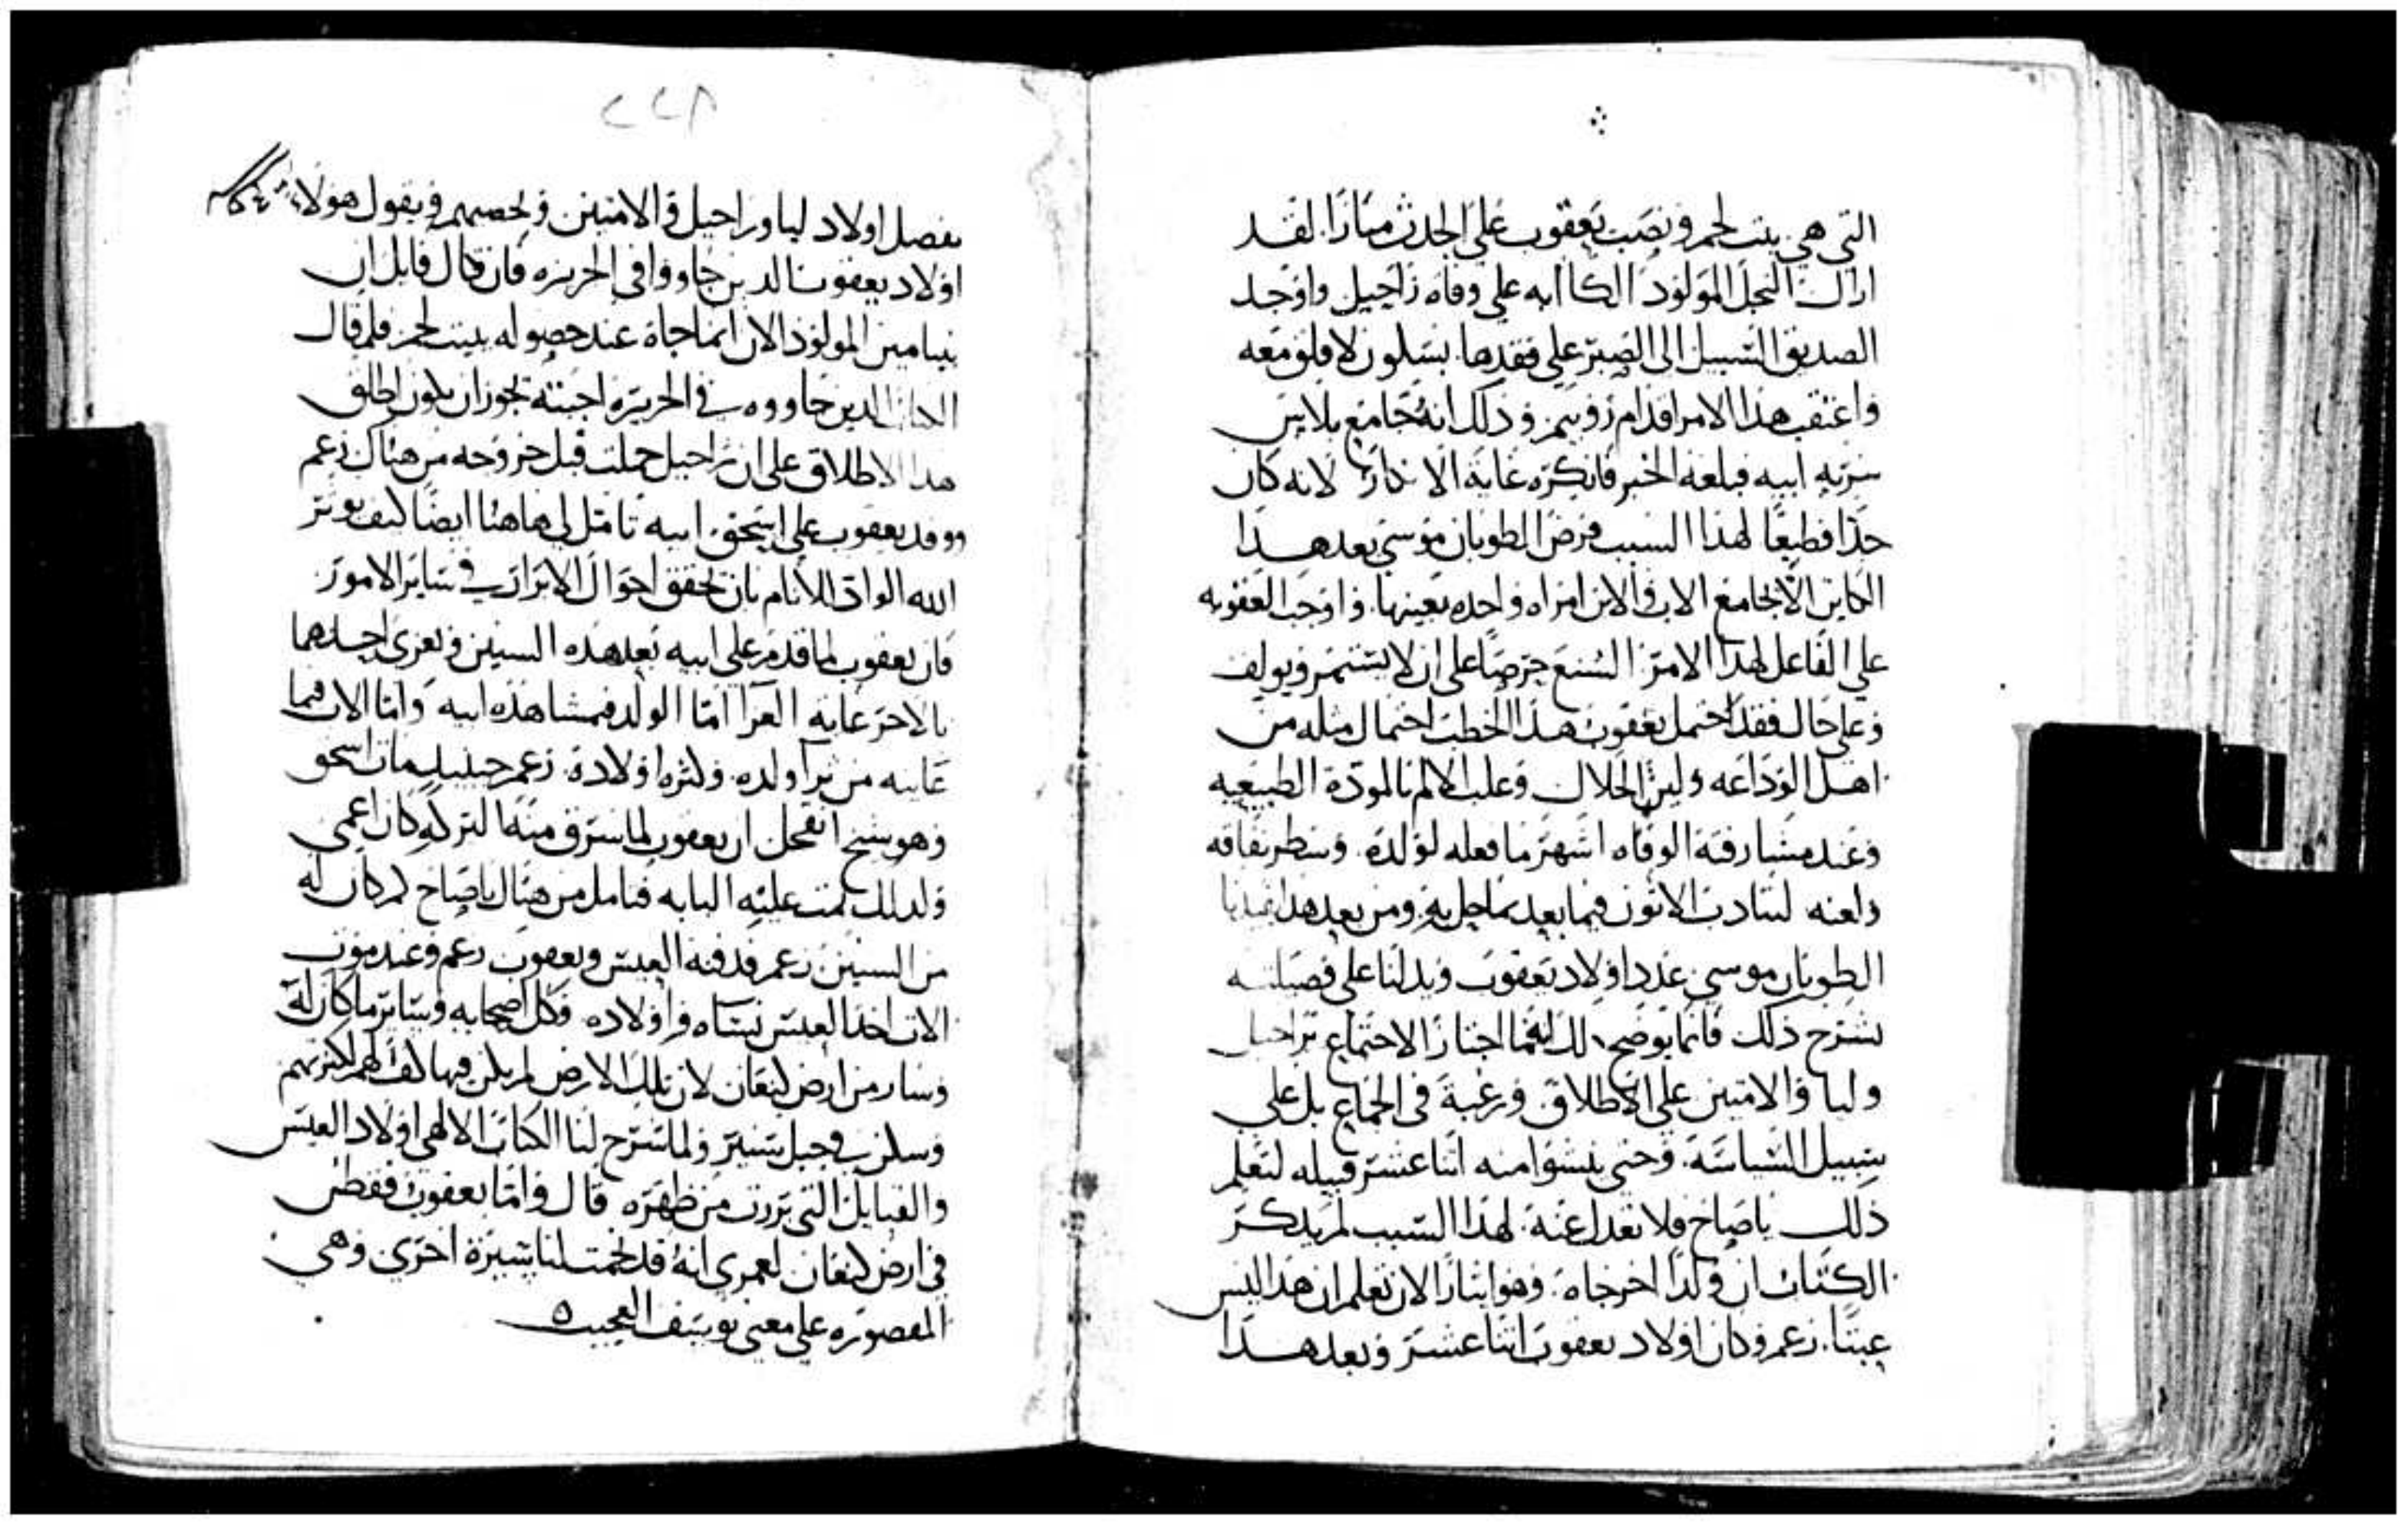 التي هي بيت لحم ونصب يعقوب على الجدث منارا. لقد
اراك النجل المولود اباه على وفاه راحيل واوجد
الصديق السبيل الى الصبر على فقدها بسلون لاقلق معه
واعتقب هذا الامر اقدام روبيم وذلك انه جامع بلاس
سريه ابيه فبلغه الخبر فانكره غايه الانكار لانه كان
جدا فظيعا لهذا السبب فرض الطوبان موسى بعد هذا
الكاين الا يجامع الاب والابن امراه واحده بعينها. واوجب العقوبه
على الفاعل لهذا الامر الشنع حرصا على ان لا يستتم ويولف
وعلى حال فقد احتمل يعقوب هذا الخطب احتمال مثله من
اهل الوداعه ولين الخلال وغلب الالم بالموده الطبيعيه
وعند مشارفة الوفاه اشهر ما فعله لولده. وسطر نفاقه
ولعنه ليتادب الاتون فيما بعد بما حل به ومن بعد هذا
الطوبان موسى عدد اولاد يعقوب ويدلنا على فضيلته
بشرح ذلك فانما يوضح لك انه ما اختار الاجتماع براحيل
وليا والامتين على الاطلاق ورغبة في الجماع بل على
سبيل السياسة. وحتى ينشوا منه اثنا عشر قبيله لتعلم
ذلك ياصاح ولا تعدل عنه. لهذا السبب لم يذكر
الكتاب ان ولدا اخر جاه. وهو ايثارا لان تعلم ان هذا ليس
عبثا. زعم وكان اولاد يعقوب اثنا عشر وبعد هذا
٢٢٨
يفصل اولاد ليا وراحيل والامتين ويخصمهم ويقول هولاء
اولاد يعقوب الذين جاووا في الحريزه فان قال قايل ان
بنيامين المولود الان انما جاه عند حصوله ببيت لحم فلم قال
الكتاب الذين جاووه في الحريزه اجبته يجوز ان يكون اطلق
هذا الاطلاق على ان راحيل حملت قبل خروجه من هناك زعم
ووفد يعقوب على اسحق ابيه تامل لي هاهنا ايضا كيف يوثر
الله الواد الانام بان يحقق احوال الابرار في ساير الامور
فان يعقوب لما قدم على ابيه بعد هذه السنين وتعزى احدهما
بالاخر غايه العزا اما الولد فبمشاهده ابيه واما الاب فبما
عاينه من ثرا ولده. وكثره اولاده. زعم حينيذ مات اسحق
وهو شيخ انقحل ان يعقوب لما سرق منه التركه كان اعمى
ولذلك تمت عليه البابه فتامل من هناك ياصاح كم كان له
من السنين زعم فدفنه العيس ويعقوب زعم وعند موت
الاب اخذ العيس نساه واولاده وكل اصحابه وساير ما كان له
وسار من ارض كنعان لان تلك الارض لم يكن فيها كفا لهم لكثرتهم
وسكن في جبل سيير ولما شرح لنا الكتاب الالهي اولاد العيس
والقبايل التي برزت من ظهره قال واما يعقوب فقطن
في ارض كنعان لعمري انه قد نجمت لنا سيرة اخرى وهي
المقصوره على معنى يوسف العجيب ه